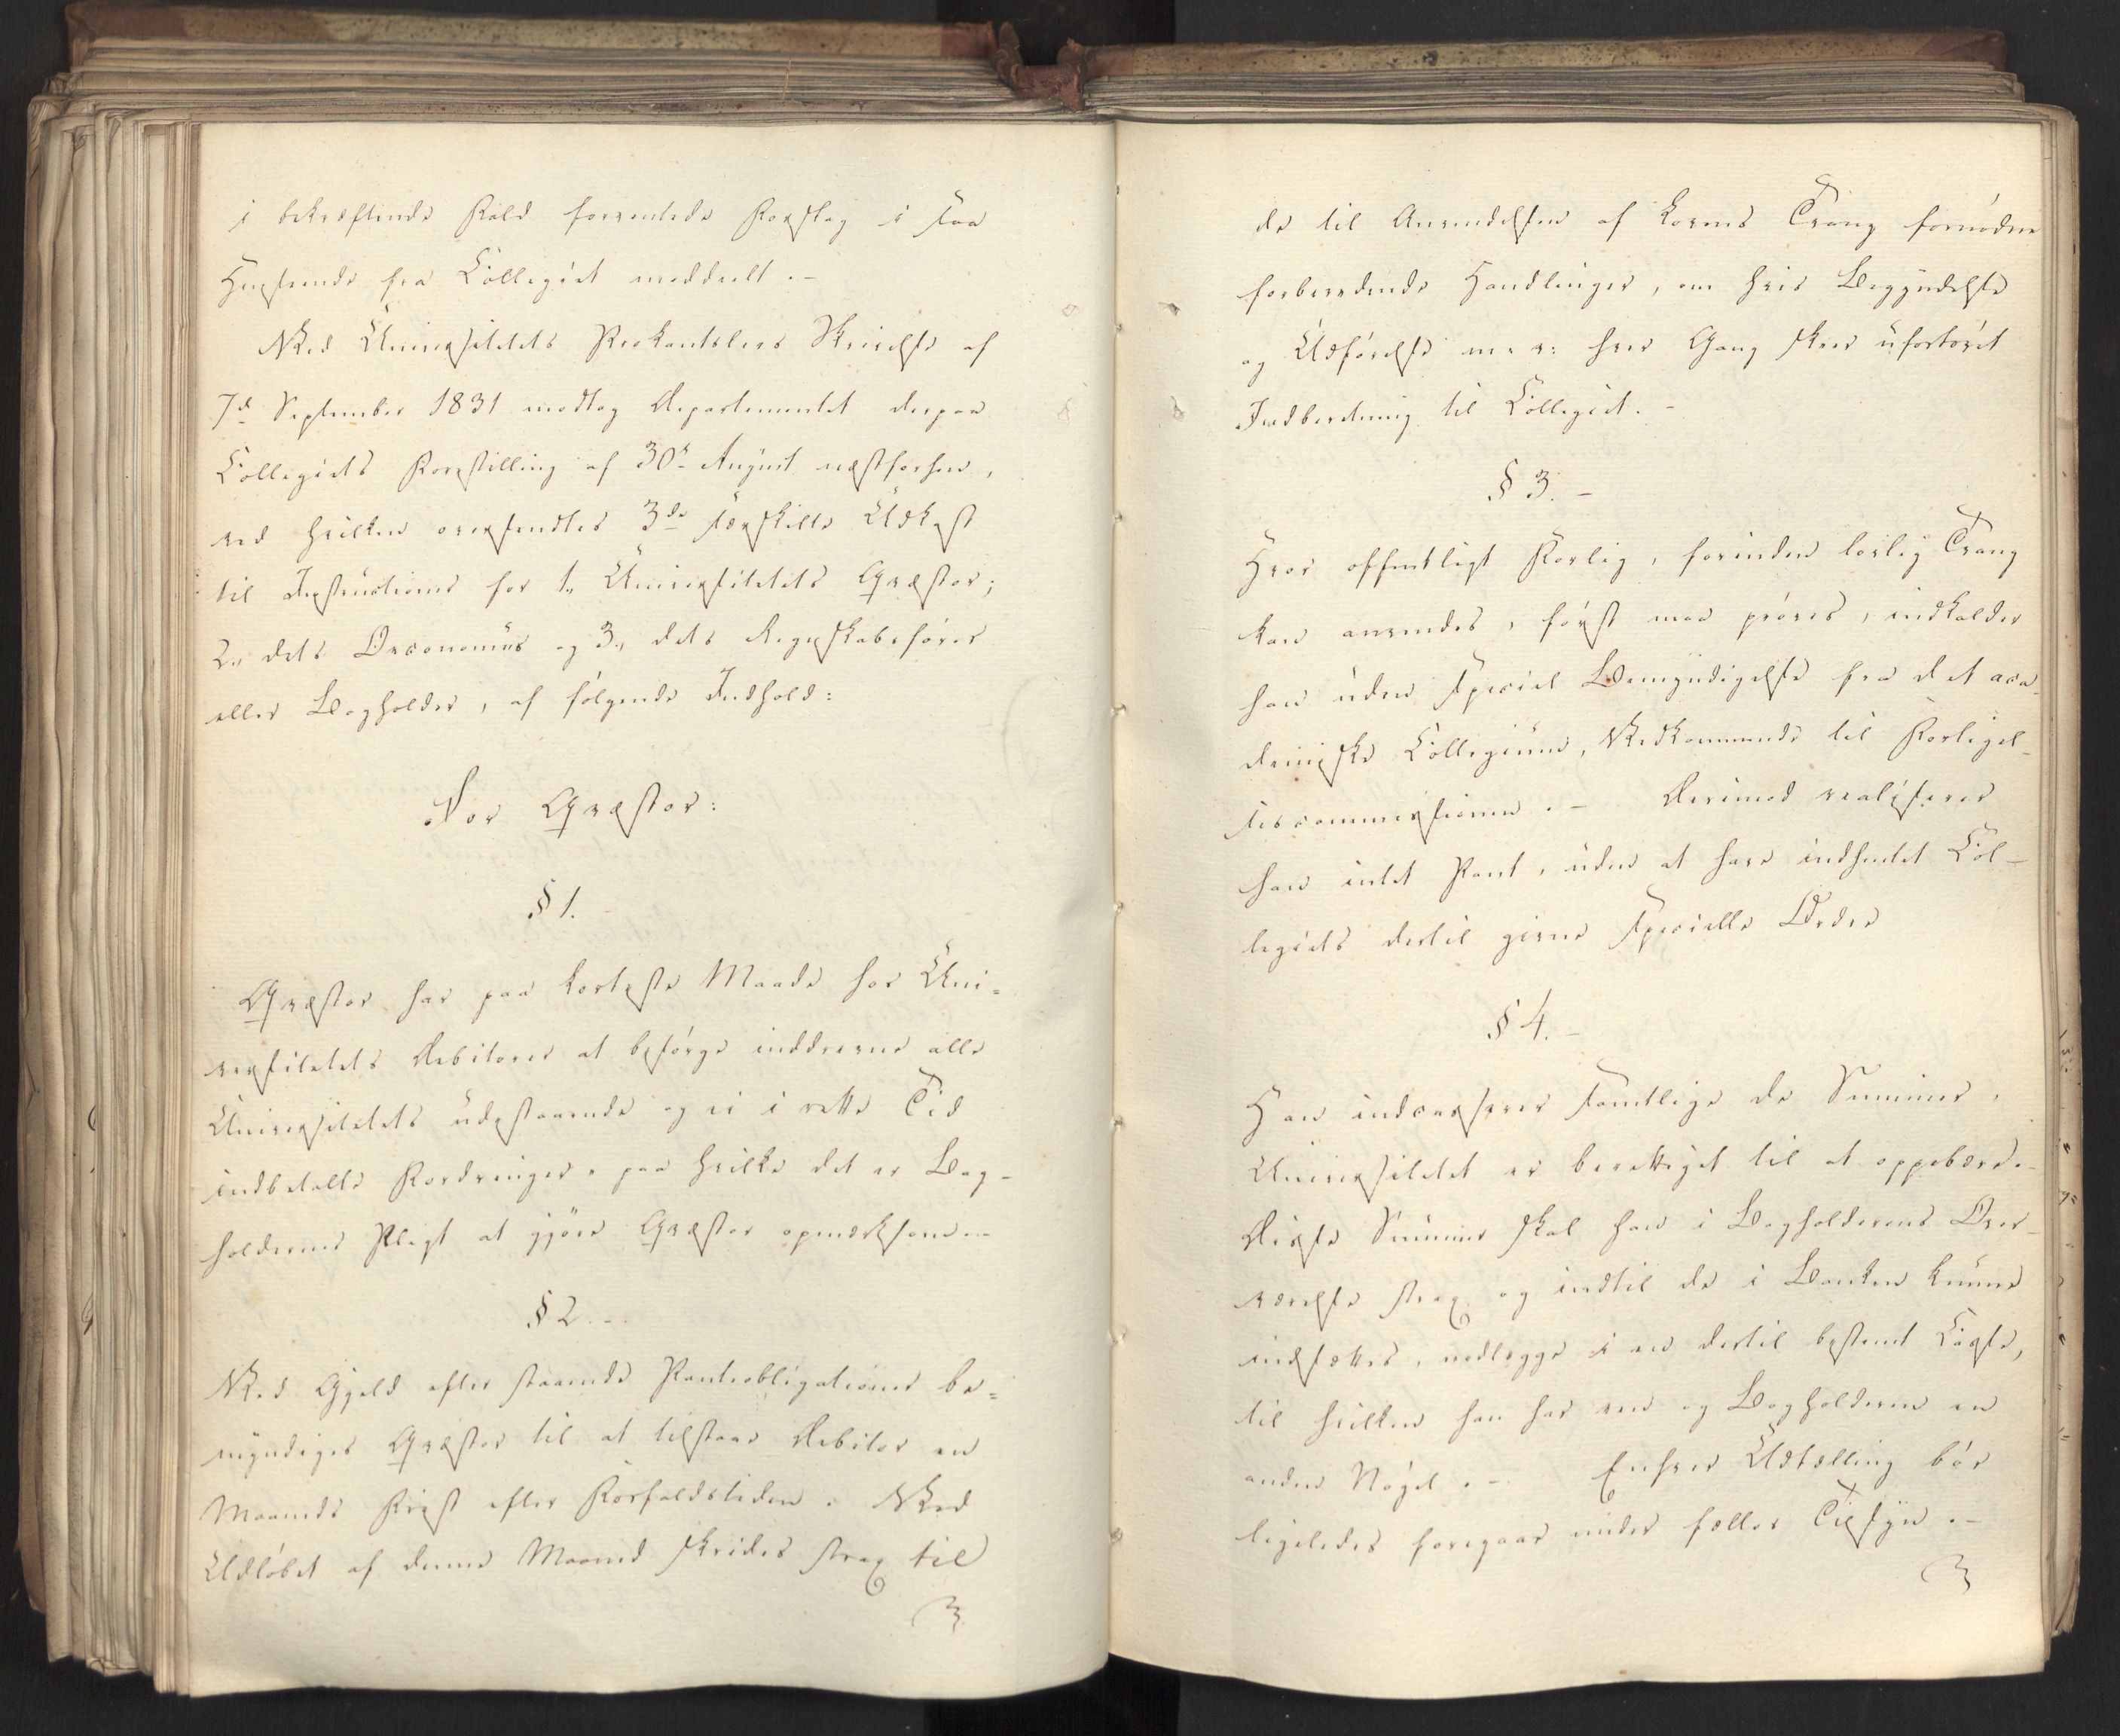 i bekræftende Fald forventede Forslag i saa
Henseende fra Collegiet meddeelt. –
Med Universitetets Prokantslers Skrivelse af
7d September 1831 modtog Departementet derpaa
Collegiets Forestilling af 30te August næstforhen,
ved hvilken oversendtes 3de særskilte Udkast
til Instructioner for 1., Universitetets Qvæstor;
2., dets Oeconomus og 3., dets Regnskabsfører
eller Bogholder, af følgende Indhold:
For Qvæstor:
§ 1. –
Qvæstor har paa korteste Maade hos Uni=
versitetets Debitorer at besørge inddrevne alle
Universitetets udestaaende og ei i rette Tid
indbetalte Fordringer, paa hvilke det er Bog-
holderens Pligt at gjöre Qvæstor opmærksom. –
§ 2. –
Med Gjeld efter staaende Panteobligationer be=
myndiges Qvæstor til at tilstaae Debitor en
Maaneds Frist efter Forfaldstiden. Med
Udløbet af denne Maaned skrides strax til
de til Anvendelsen af Lovens Tvang fornødne
forberedende Handlinger, om hvis Begyndelse
og Udførelse m. v. hver Gang skeer ufortøvet
Indberetning til Collegiet. –
§ 3. –
Hvor offentligt Forlig, forinden lovlig Tvang
kan anvendes, først maa prøves, indkalder
han uden speciel Bemyndigelse fra det aca-
demiske Collegium, Vedkommende til Forligel-
sescommissionen. – Derimod realiserer
han intet Pant, uden at have indhentet Col-
legiets dertil givne specielle Ordre
§ 4. –
Han indcasserer samtlige de Summer,
Universitetet er berettiget til at oppebære. –
Disse Summer skal han i Bogholderens Over-
værelse strax og indtil de i Banken kunne
indsættes, nedlægge i en dertil bestemt Casse,
til hvilken han har een og Bogholderen en
anden Nøgel. – Enhver Udtælling bør
ligeledes foregaae under fælles Tilsyn. –